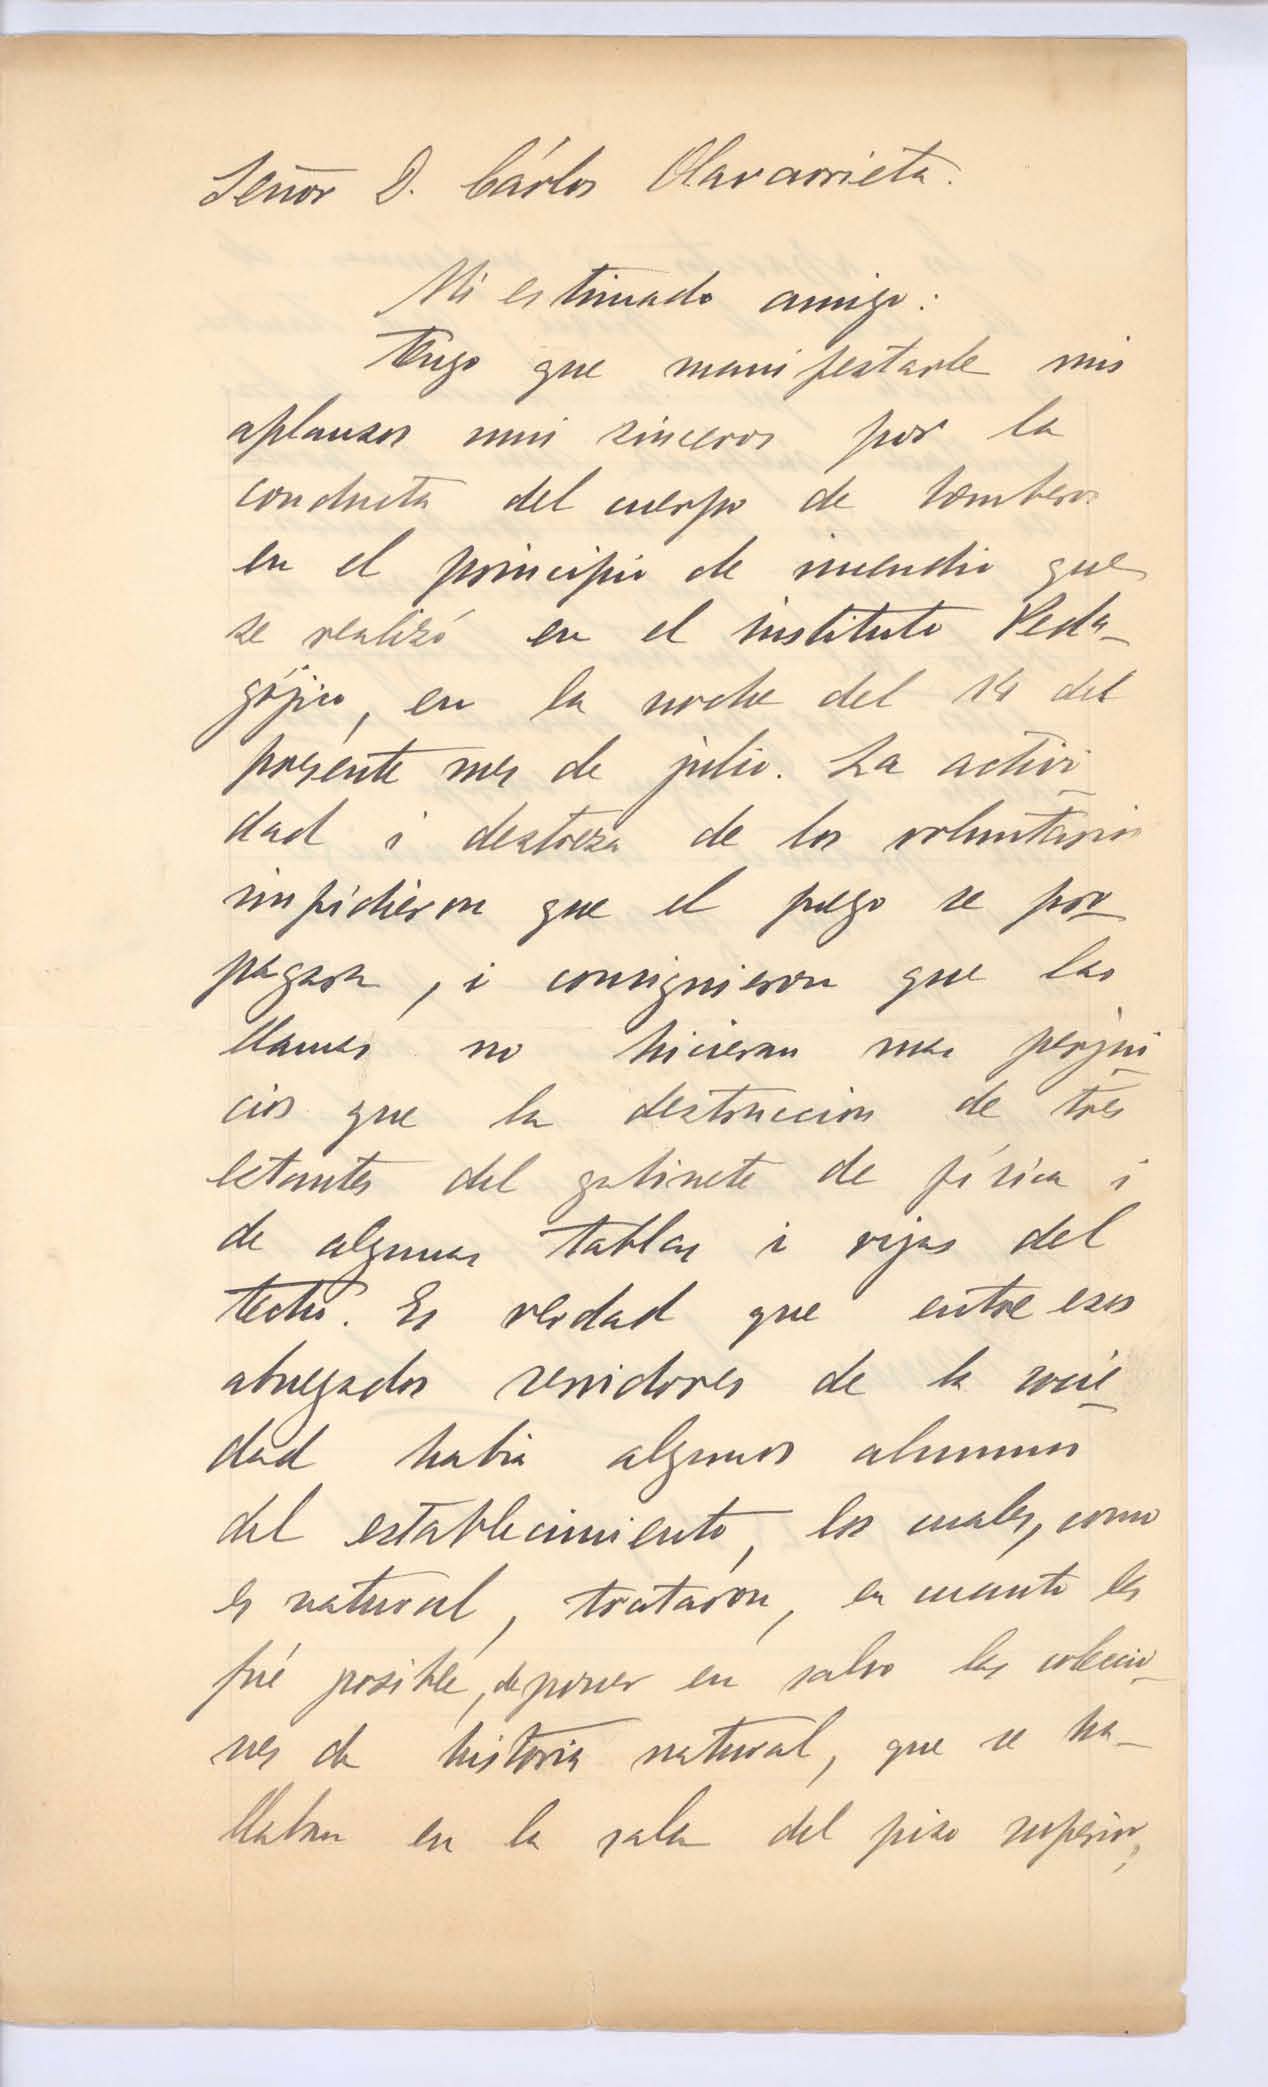 Señor D. Cárlos Olavarrieta.
Mi estimado amigo:
Tengo que manifestarle mis
aplausos mui sinceros por la
conducta del cuerpo de bomberos
en el principio de incendio que
se realizó en el instituto Peda-
gójico, en la noche del 14 del
presente mes de julio. La activi-
dad i destreza de los voluntarios
impidieron que el fuego se pro-
pagara, i consiguieron que las
llamas no hicieran mas perjui-
cios que la destruccion de tres
estantes del gabinete de física i
de algunas tablas i vigas del
techo. Es verdad que entre esos
abnegados servidores de la socie-
dad habia algunos alumnos
del establecimiento, los cuales, como
es natural, trataron, en cuanto les
fué posible, de poner en salvo las coleccio-
nes de historia natural, que se ha-
llaban en la sala del piso superior,